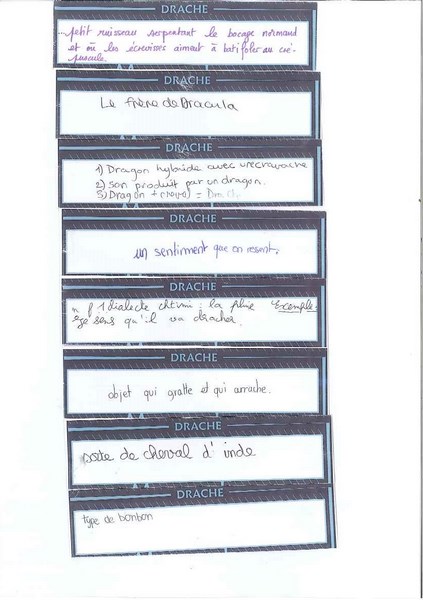 DRACHE
petit ruisseau serpentant le bocage normand
et où les écrevisses aiment à batifoler au cré-
puscule.
DRACHE
Le frère de Dracula
DRACHE
1) Dragon hybride avec une cravache
2) son produit par un dragon.
3) Dragon + cheval = Drache
DRACHE
un sentiment que on resent.
DRACHE
n f 1 dialecte chtimi : la pluie Exemple
ge sens qu'il va dracher.
DRACHE
objet qui gratte et qui arrache.
DRACHE
sorte de cheval d'inde
DRACHE
type de bonbon